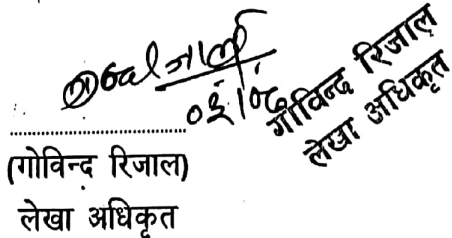 गोविन्द रिजाल
लेखा अधिकृत
..............................
(गोविन्द रिजाल)
लेखा अधिकृत